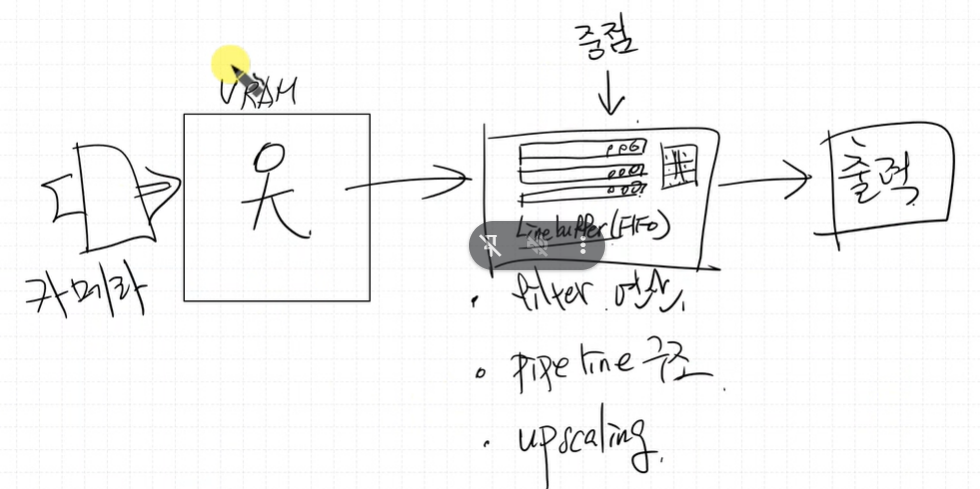 중점
VRAM
카메라
Line buffer (FIFO)
출력
• filter 연산,
• pipeline 구조.
• upscaling.